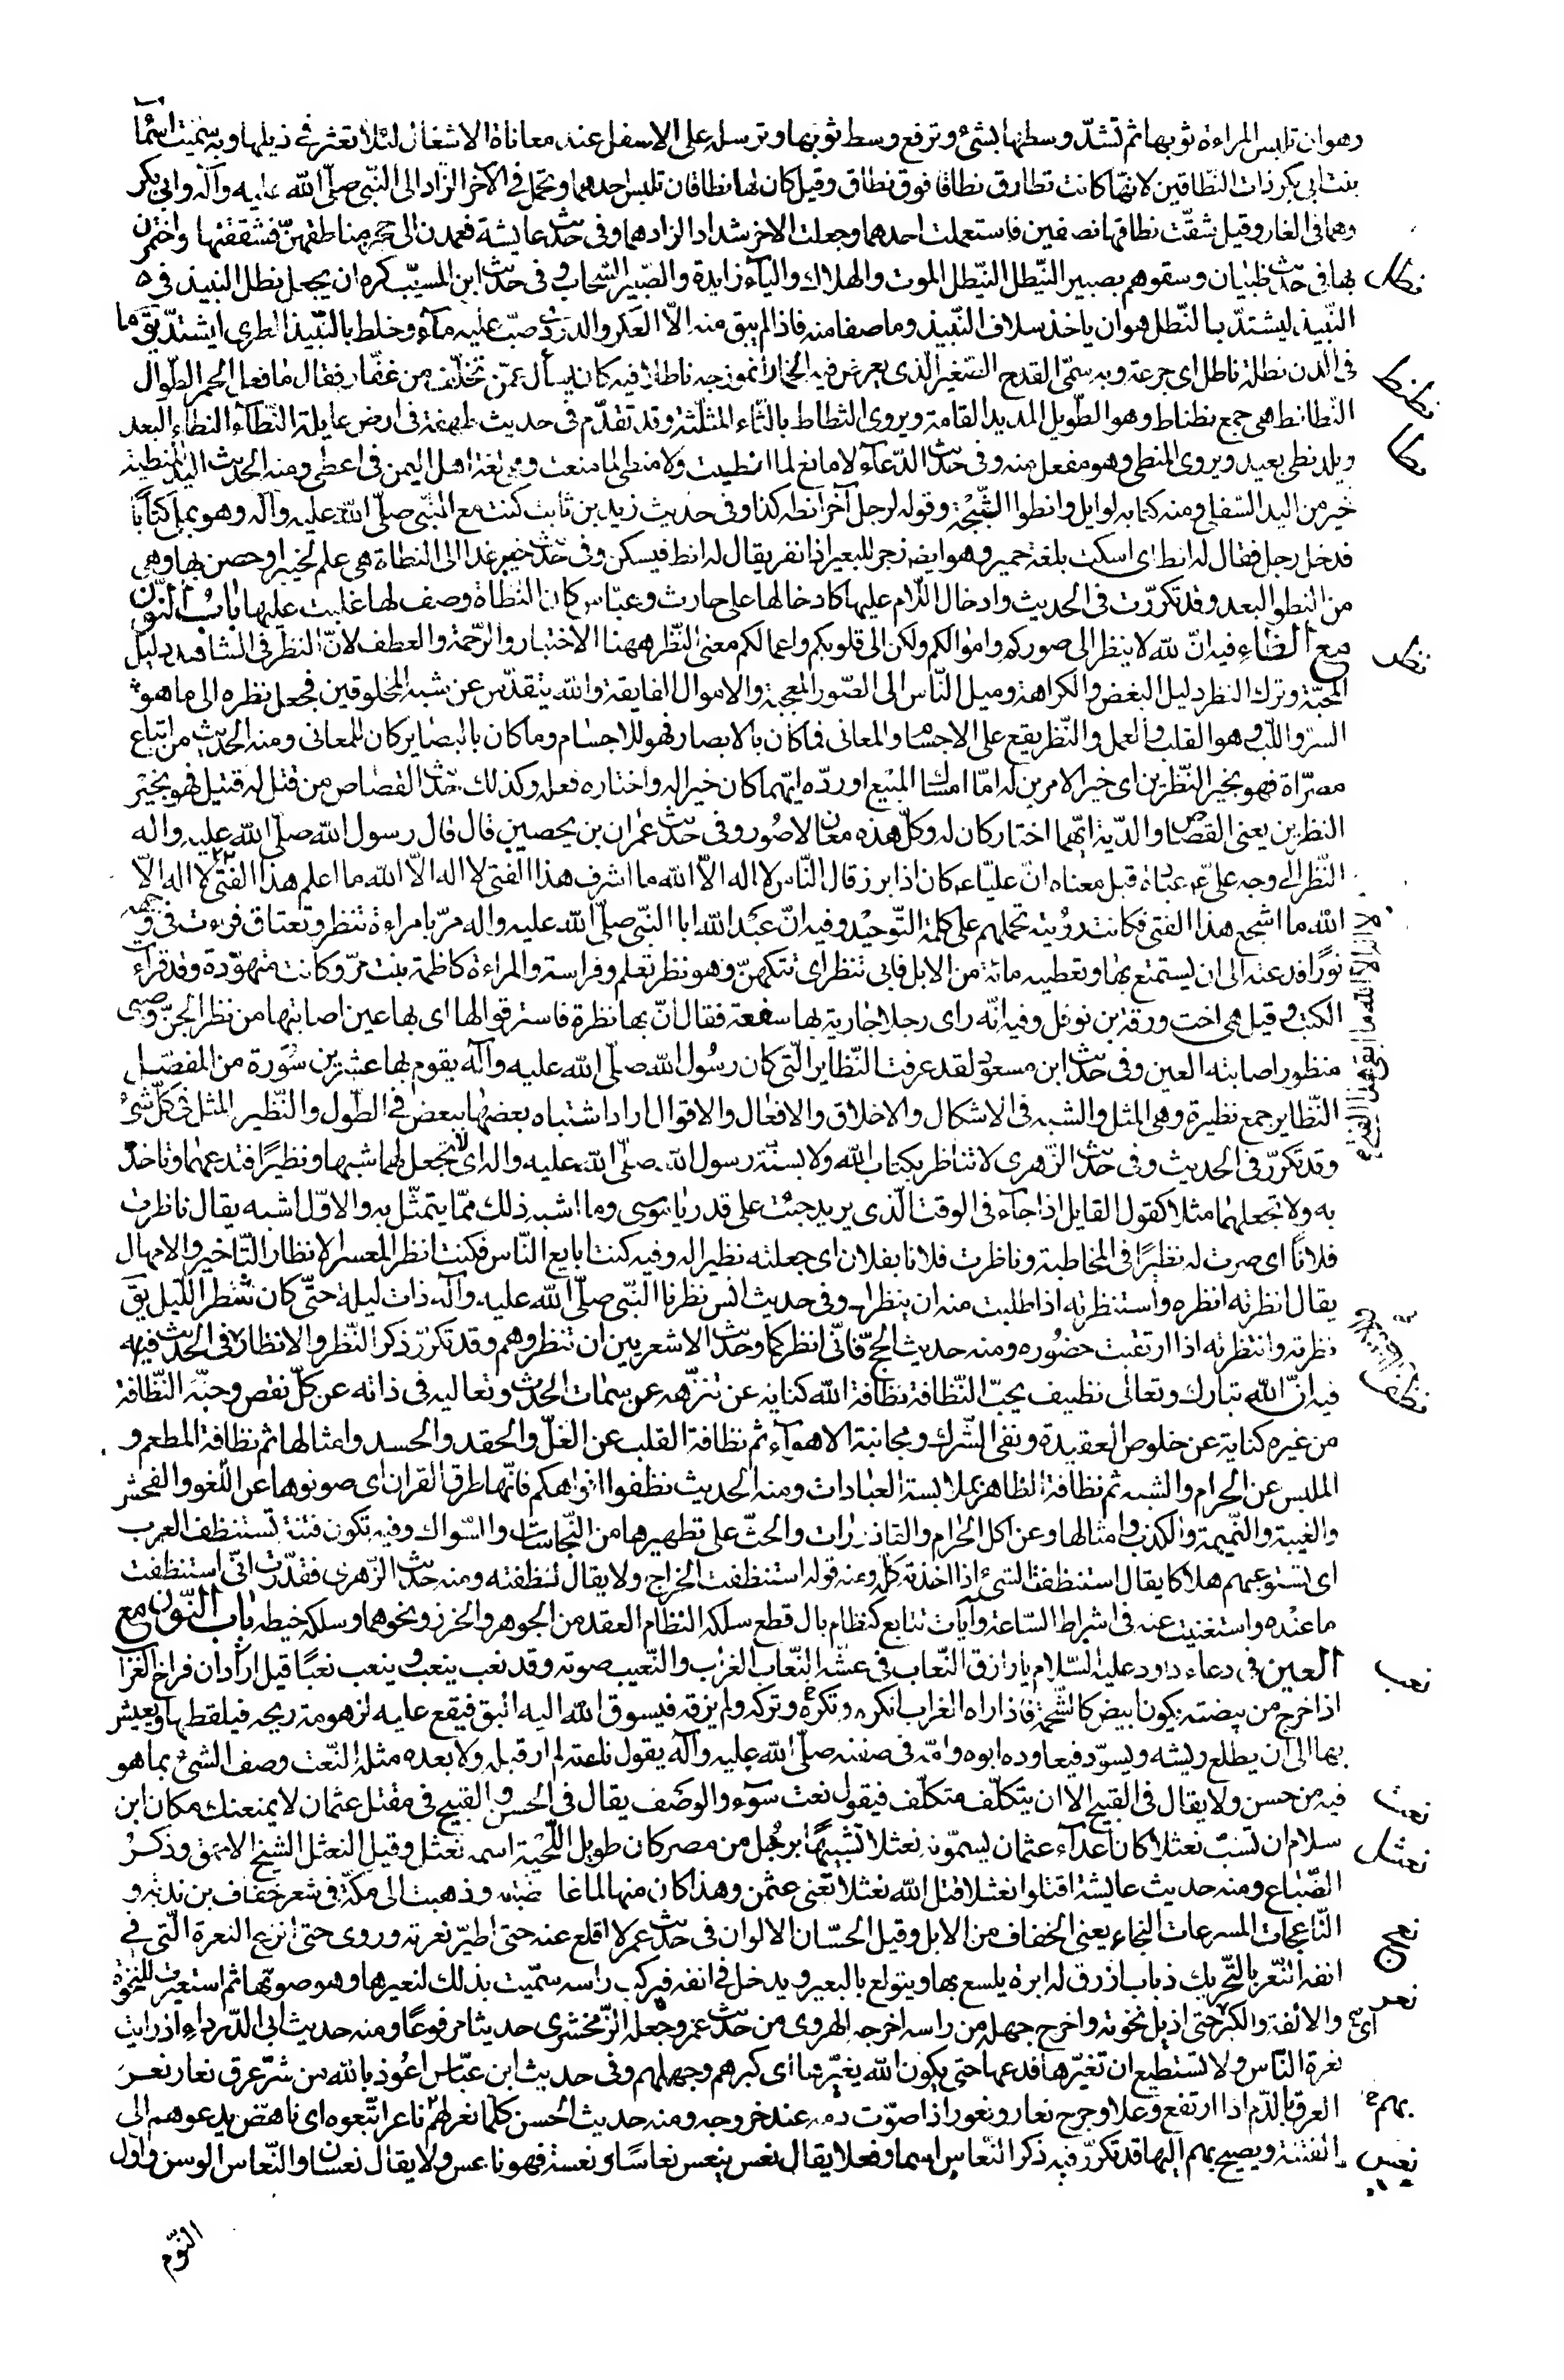 وهو ان تلبس المراءة ثوبها ثم تشدّ وسطها بشئ وترفع وسط ثوبها وترسله على الاسفل عند معاناة الاشغال لئلا تعثر فى ذيلها وبه سميّت اسمآء
بنت ابى بكر ذات النّطاقين لانّها كانت تطارق نطاقا فوق نطاق وقيل كان لها نطاقان تلبس احدهما وتحمل فى الآخر الزاد الى النّبى صلّى الله عليه وآله وابى بكر
وهما فى الغار وقيل شقّت نطاقها نصفين فاستعملت احدهما وجعلت الاخر شداد الزادهما وفى حديث عايشة فعمدن الى حجز مناطقهنّ فشققنها واختمرن
نطل بها فى حديث ظبيان وسقوهم بصبير النّيطل النّيطل الموت والهلاك واليآء زايدة والصّبير السّحاب وفى حديث ابن المسيّب كره ان يجعل نطل النبيذ فى
النّبيذ ليشتدّ بالنّطل هو ان ياخذ سلاف النّبيذ وما صفا منه فاذا لم يبق منه الّا العكر والدردى صبّ عليه مآء وخلط بالنّبيذ الطرى ليشتدّ يق ما
نطنط فى الدن نطلة ناطل اى جرعة وبه سمّى القدح الصّغير الّذى يعرض فيه الخمار انموذجه ناطلا فيه كان يسأل عمّن تخلّف من غفّار فقال ما فعل الحمر الطّوال
النّطانط هى جمع نطناط وهو الطّويل المديد القامة ويروى الثطاط بالثاء المثلّثة وقد تقدّم فى حديث طهفة فى ارض غايلة النّطآء النطاء البعد
نطا وبلد نطى بعيد ويروى المنطى وهو مفعل منه وفى حديث الدّعآء لا مانع لما انطيت ولا منطى لما منعت وهى لغة اهل اليمن فى اعطى ومنه الحديث اليد المنطية
خير من اليد السّفلى ومنه كتابه لوايل وانطوا الثّبجة وقوله لرجل آخر انطه كذا وفى حديث زيد بن ثابت كنت مع النّبى صلّى الله عليه وآله وهو يملى كتابًا
فدخل رجل فقال له انط اى اسكت بلغة حمير وهو ايضا زجر للبعير اذا نفر يقال له انط فيسكن وفى حديث خيبر غدا الى النطاة هى علم لخيبر او حصن بها وهى
من النطو البعد وقد تكررّت فى الحديث وادخال اللّام عليها كادخالها على حارث وعبّاس كان النطاة وصف لها غلبت عليها باب النّون
نظر مع الظاء فيه انّ الله لا ينظر الى صوركم واموالكم ولكن الى قلوبكم واعمالكم معنى النّظر ههنا الاختيار والرّحمة والعطف لانّ النظر فى الشاهد دليل
المحبّة وترك النظر دليل البغض والكراهة وميل النّاس الى الصّور المعجبة والاموال الفايقة والله يتقدّس عن شبه المخلوقين فجعل نظره الى ما هو
السرّ واللبّ وهو القلب والعمل والنّظر يقع على الاجسام والمعانى فما كان بالابصار فهو للاجسام وما كان بالبصاير كان للمعانى ومنه الحديث من ابتاع
مصرّاة فهو بخير النّظرين اى خير الامرين له امّا امساك المبيع او ردّه ايّهما كان خيرا له واختاره فعله وكذلك حديث القصاص من قتل له قتيل فهو بخير
النظرين يعنى القصاص والدّية ايّهما اختار كان له وكلّ هذه معان لا صور وفى حديث عمران بن حصين قال قال رسول الله صلّى الله عليه واله
النّظر الى وجه علىّ عبادة قيل معناه انّ عليّا كان اذا برز قال النّاس لا اله الّا الله ما اشرف هذا الفتى لا اله الّا الله ما اعلم هذا الفتى لا اله الّا
الله ما اشجع هذا الفتى فكانت رؤيته تحملهم على كلمة التّوحيد وفيه انّ عبد الله ابا النّبى صلّى الله عليه واله مرّ بامراءة تنظر وتعتاف فرءت فى وجهه
لا اله الا الله ما اتقى هذا الفتى
نورًا فدعته الى ان يستمتع بها وتعطيه مائة من الابل فابى تنظر اى تتكهنّ وهو نظر تعلم وفراسة والمراءة كاظمة بنت مرّ وكانت متهوّدة وقد قرأت
الكتب وقيل هى اخت ورقة بن نوفل وفيه انّه راى رجلا جارية بها سفعة فقال انّ بها نظرة فاسترقوا لها اى بها عين اصابتها من نظر الجنّ وصبى
منظور اصابته العين وفى حديث ابن مسعود لقد عرفت النّظاير الّتى كان رسول الله صلّى الله عليه وآله يقوم بها عشرين سورة من المفصّل
النّظاير جمع نظيرة وهى المثل والشبه فى الاشكال والاخلاق والافعال والاقوال اراد اشتباه بعضها ببعض فى الطّول والنّظير المثل فى كلّ شئ
وقد تكررّ فى الحديث وفى حديث الزّهرى لا تناظر بكتاب الله ولا بسنّة رسول الله صلّى الله عليه واله اى لا تجعل لهما شبها ونظيرًا فتدعهما وتاخذ
به ولا تجعلهما مثلا كقول القايل اذا جآء فى الوقت الّذى يريد جئت على قدر يا موسى وما اشبه ذلك ممّا يتمثّل به والاوّل اشبه يقال ناظرت
فلانًا اى صرت له نظيرًا فى المخاطبة وناظرت فلانا بفلان اى جعلته نظيرا له وفيه كنت ابايع النّاس فكنت انظر المعسر الانظار التّاخير والامهال
يقال انظرته انظره واستنظرته اذا طلبت منه ان ينظرك وفى حديث انس نظرنا النّبى صلّى الله عليه وآله ذات ليلة حتّى كان شطر اللّيل يق
نظرته وانتظرته اذا ارتقبت حضوره ومنه حديث الحجّ فانّى انظركما وحديث الاشعريين ان تنظروهم وقد تكررّ ذكر النّظر والانظار فى الحديث فيه
نظف فيه انّ الله تبارك وتعالى نظيف يحبّ النّظافة نظافة الله كناية عن تنزّهه عن سمات الحدث وتعاليه فى ذاته عن كلّ نقص وحبّه النّظافة
من غيره كناية عن خلوص العقيدة ونفى الشّرك ومجانبة الاهوآء ثم نظافة القلب عن الغلّ والحقد والحسد وامثالها ثم نظافة المطعم و
الملبس عن الحرام والشبه ثم نظافة الظاهر بملابسة العبادات ومنه الحديث نظفوا افواهكم فانّها طرق القران اى صونوها عن اللّغو والفحش
والغيبة والنّميمة والكذب وامثالها وعن اكل الحرام والقاذورات والحثّ على تطهيرها من النّجاسات والسّواك وفيه تكون فتنة تستنظف العرب
اى تستوعبهم هلاكا يقال استنظفت الشئ اذا اخذته كلّه ومنه قوله استنظفت الخراج ولا يقال نظفته ومنه حديث الزّهرى فقدّرت انّى استنظفت
ما عنده واستغنيت عنه فى اشراط السّاعة وآيات تتابع كنظام بال قطع سلكه النظام العقد من الجوهر والخرز ونحوهما وسلكه خيطه باب النّون مع
نعب العين فى دعاء داود عليه السّلام يا رازق النّعاب فى عشّه النّعاب الغراب والنّعيب صوته وقد نعب ينعب وينعب نعبًا قيل اراد ان فراخ الغراب
اذا خرج من بيضته يكون ابيض كالشّحمة فاذا راه الغراب انكره وتركه ولم يزقه فيسوق الله اليه البّق فيقع عليه لزهومة ريحه فيلقطها ويعيش
بها الى ان يطلع ريشه ويسوّد فيعاوده ابوه وامّه فى صفته صلّى الله عليه وآله يقول ناعته لم ار قبله ولا بعده مثله النّعت وصف الشئ بما هو
نعت فيه من حسن ولا يقال فى القبيح الا ان يتكلّف متكلّف فيقول نعت سوء والوصف يقال فى الحسن والقبيح فى مقتل عثمان لا يمنعنك مكان ابن
نعثل سلام ان تسبّ نعثلا كان اعدآء عثمان يسمّونه نعثلا تشبيهًا برجل من مصر كان طويل اللّحية اسمه نعثل وقيل النعثل الشيخ الاحمق وذكر
الضّباع ومنه حديث عايشة اقتلوا نعثلا قتل الله نعثلا تعنى عثمن وهذا كان منها لما غاضبته وذهبت الى مكّة فى شعر خفاف بن ندبة و
نعج النّاعجات المسرعات النجاء يعنى الخفاف من الابل وقيل الحسان الالوان فى حديث عمر لا اقلع عنه حتى اطيّر نعرته وروى حتى انزع النعرة الّتى فى
نعر انفه النّعرة بالتّحريك ذباب ازرق له ابرة يلسع بها ويتولع بالبعير ويدخل فى انفه فيركب راسه سمّيت بذلك لنعيرها وهو صوتها ثم استعيرت للنخوة
والانفة والكبر اى حتى ازيل نخوته واخرج جهله من راسه اخرجه الهروى من حديث عمر وجعله الزّمخشرى حديثا مرفوعًا ومنه حديث ابى الدّرداء اذا رايت
نعرة النّاس ولا تستطيع ان تغيّرها فدعها حتى يكون الله يغيّرها اى كبرهم وجهلهم وفى حديث ابن عبّاس اعوذ بالله من شرّ عرق نعار نعر
العرق بالدّم اذا ارتفع وعلا وجرح نعار ونعور اذا صوّت دمه عند خروجه ومنه حديث الحسن كلّما نعر بهم ناعر اتّبعوه اى ناهض يدعوهم الى
نعس الفتنة ويصيح بهم اليها قد تكررّ فيه ذكر النّعاس اسما وفعلا يقال نعس ينعس نعاسًا ونعسة فهو ناعس ولا يقال نعسان والنّعاس الوسن واوّل
النّوم